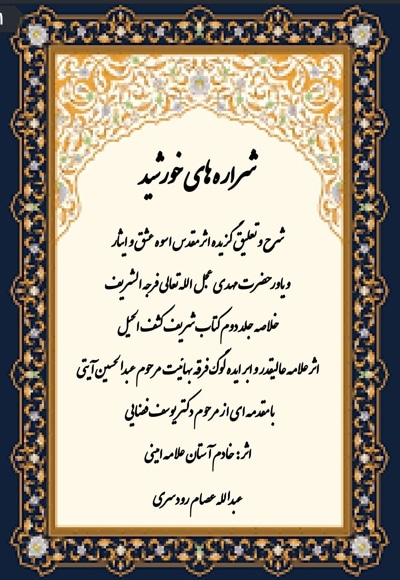 شراره های خورشید
شرح و تعلیق گزیده اثر مقدس اسوه عشق و ایثار
و یاور حضرت مهدی عجل الله تعالی فرجه الشریف
خلاصه جلد دوم کتاب شریف کشف الحیل
اثر علامه عالیقدر و ابر ایده لوک فرقه بهائیت مرحوم عبدالحسین آیتی
با مقدمه ای از مرحوم دکتر یوسف فضایی
اثر: خادم آستان علامه امینی
عبدالله عصام رودسری